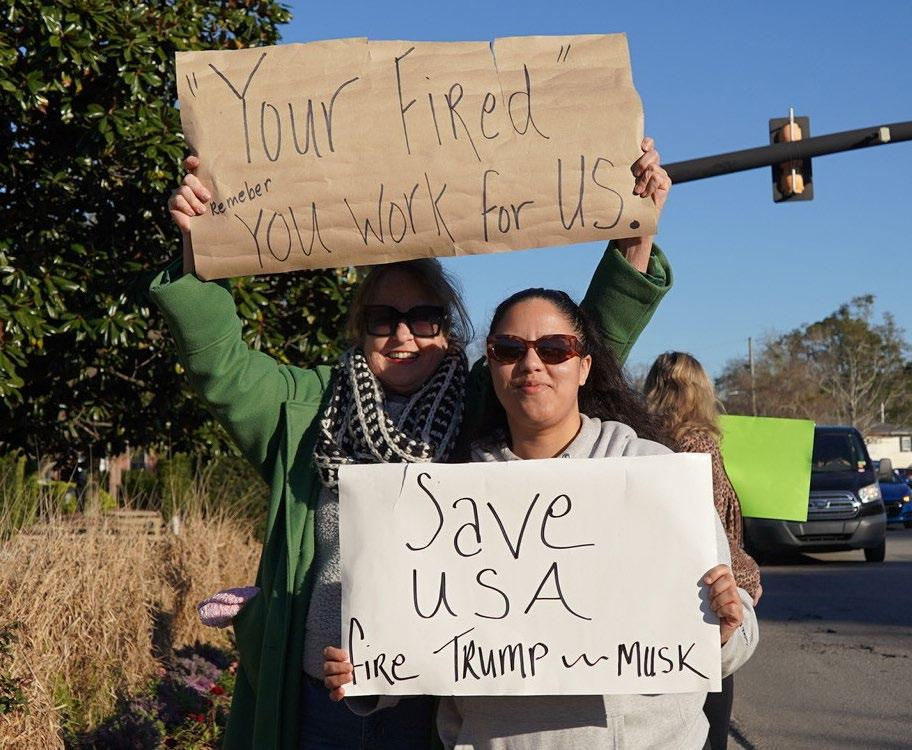 "Your Fired"
Remeber
You work for US.
Save
USA
fire TRUMP ~ MUSK